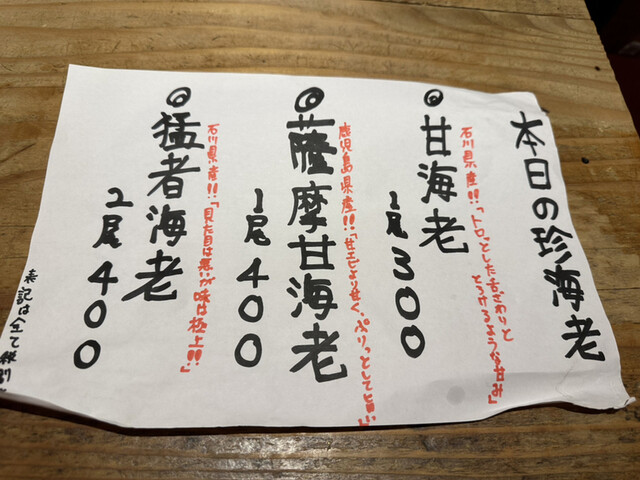 本日の珍海老
◎甘海老
石川県産!!「トロっとした舌ざわりと
とろけるような甘み」
1尾300
◎薩摩甘海老
鹿児島県産!!「甘エビより甘く、ぷりっとして旨い」
1尾400
◎猛者海老
石川県産!!「見た目は悪いが味は極上!!」
2尾400
表記は全て税別